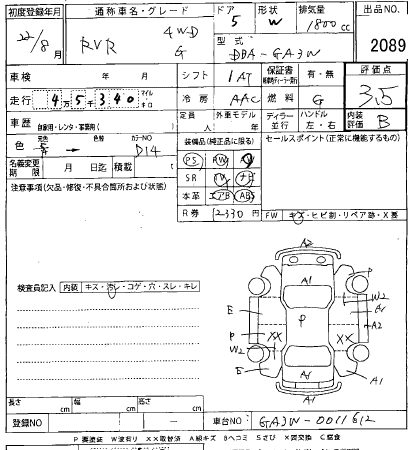 初度登録年月 通称車名・グレード ドア 形状 排気量 出品NO.
22/8月 RVR 4WD G 5 W 1800cc
型式 DBA-GA3W 2089
車検 年 月 シフト 1AT 保証書 有・無 評価点
走行 4万5千340 マイル キロ 冷房 AAC 燃料 G 3.5
車歴 自家用・レンタ・事業用( ) 定員 人 外車モデル 年 ディーラー 並行 ハンドル 左・右 内装評価 B
色 元色 → 色替 カラーNO D14 装備品(純正品に限る) セールスポイント(正常に機能するもの)
名義変更期限 月 日迄 積載 PS PW
注意事項(欠品・修復・不具合箇所および状態) SR TV ナビ
本革 エアB ABS
R券 12330 FW キズ・ヒビ割・リペア跡・X要
検査員記入 内装 キズ・汚レ・コゲ・穴・スレ・キレ
A2
A1 P
E P W2 A1
P XX XX A2
W2
E A1 A1
長さ cm 幅 cm 高さ cm
登録NO 車台NO. GA3W-0011612
P 要塗装 W波有り XX取替済 A線キズ Bヘコミ Sさび X要交換 C腐食